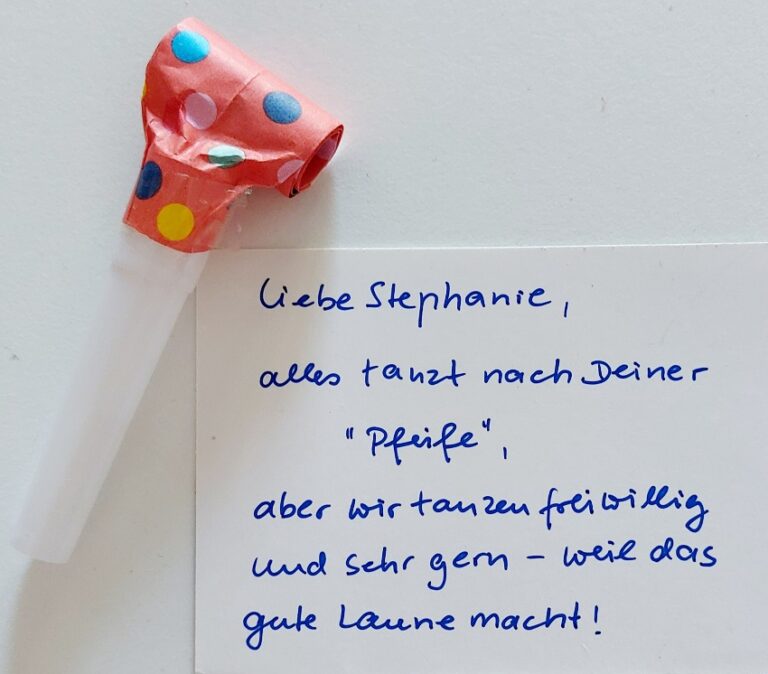 Liebe Stephanie,
alles tanzt nach Deiner
"Pfeife",
aber wir tanzen freiwillig
und sehr gern – weil das
gute Laune macht!